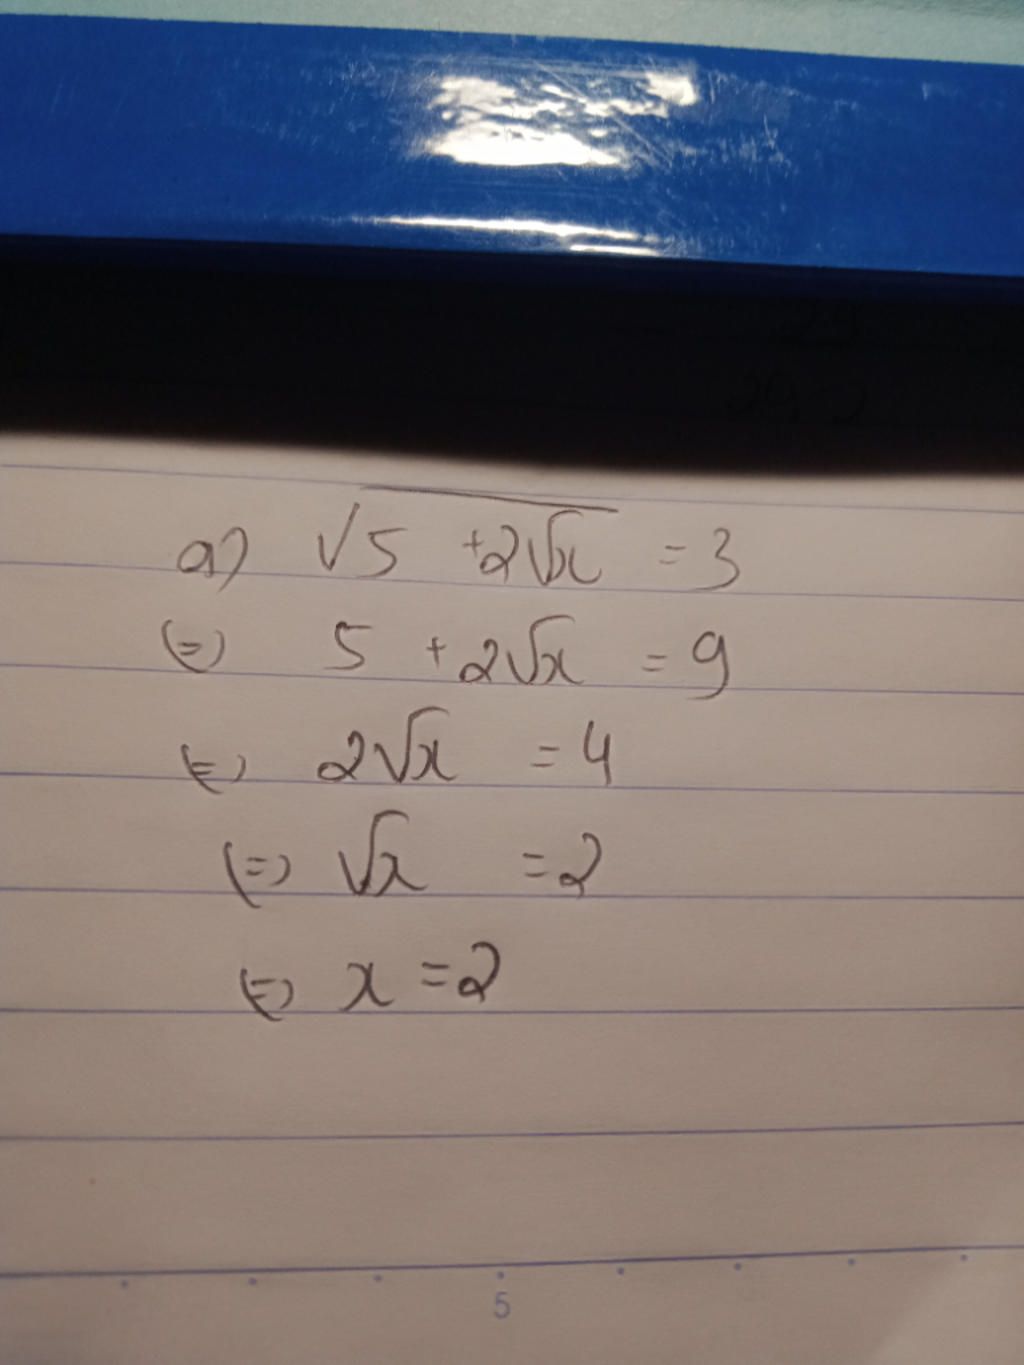 a) √(5 +2√x) = 3
(=) 5 + 2√x = 9
(=) 2√x = 4
(=) √x = 2
(=) x = 2
5